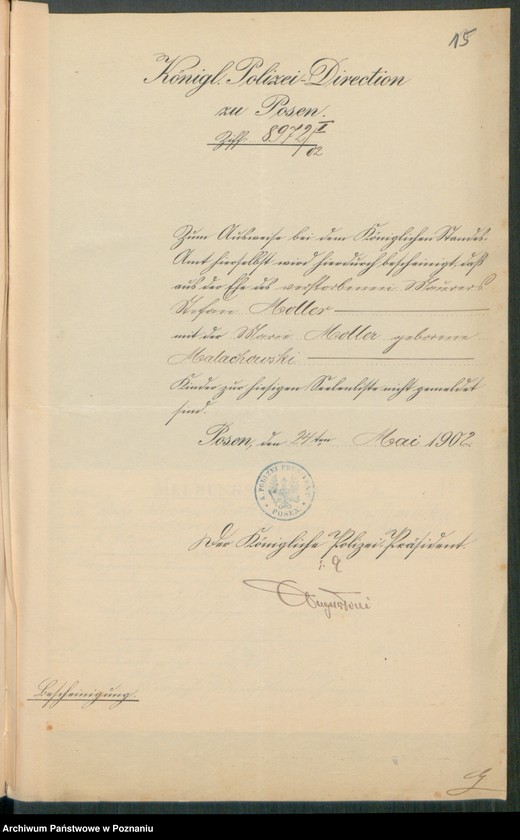 15
Königl. Polizei-Direction
zu Posen.
8972 II
/02
Zum Ausweise bei dem Königlichen Standes-
Amt hierselbst wird hierdurch bescheinigt, daß
aus der Ehe des verstorbenen Maurers
Stefan Adler
mit der Marie Adler geborene
Malachowski
Kinder zur hiesigen Seelenliste nicht gemeldet
sind.
Posen, den 24ten Mai 1902
K. POLIZEI PRÄSIDENT
POSEN
Der Königliche Polizei-Präsident.
Bescheinigung.
Archiwum Państwowe w Poznaniu